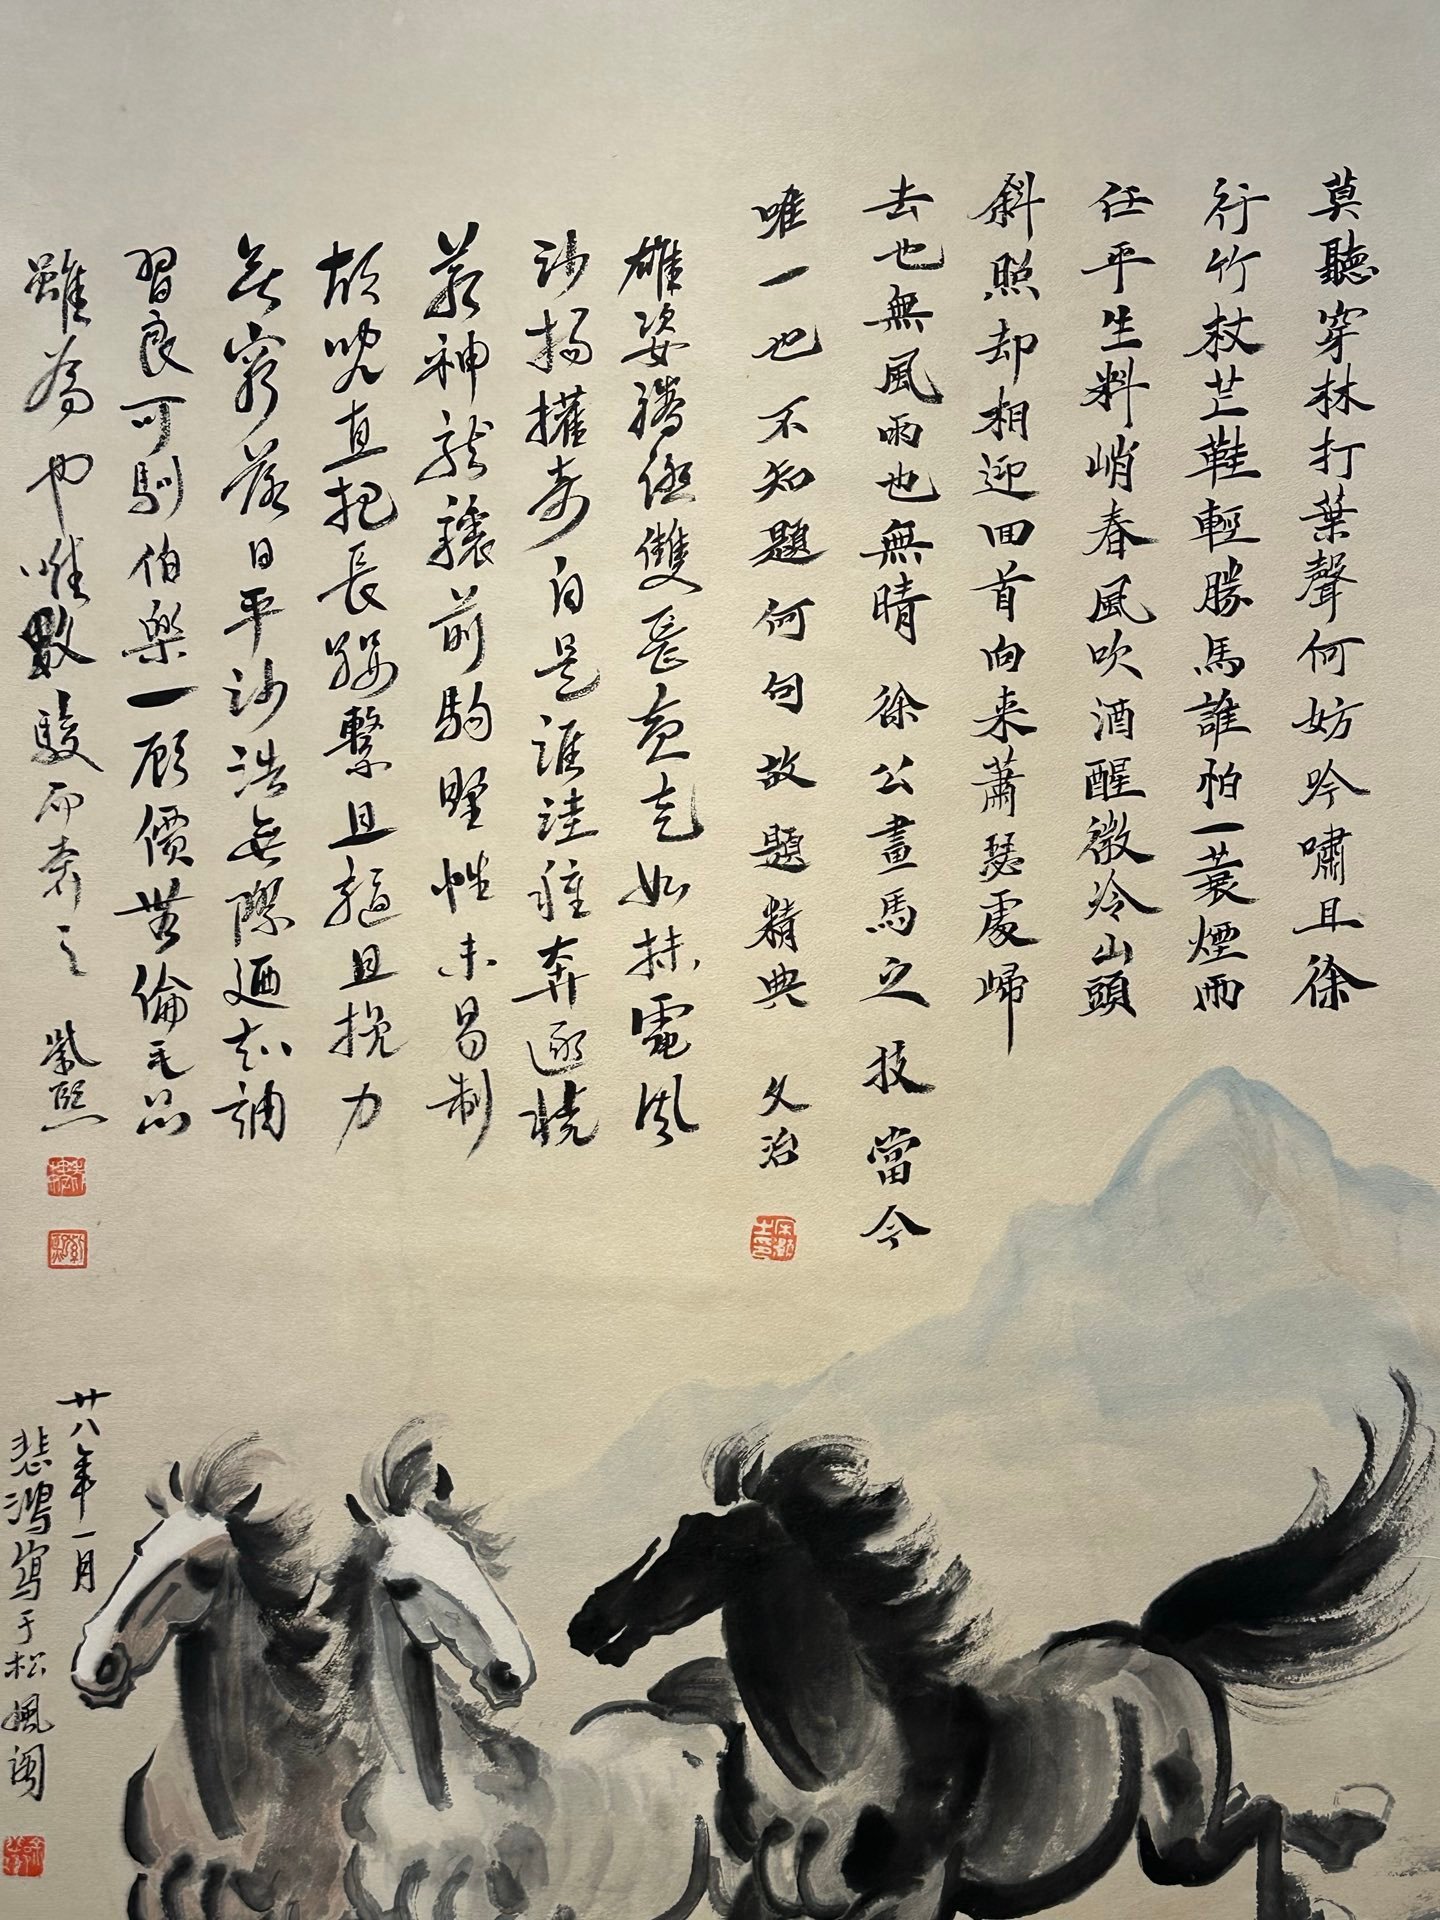 莫聽穿林打葉聲何妨吟嘯且徐
行竹杖芒鞋輕勝馬誰怕一蓑煙雨
任平生料峭春風吹酒醒微冷山頭
斜照却相迎回首向来蕭瑟處歸
去也無風雨也無晴 徐公畫馬之技當今
唯一也不知題何句故題精典 文治
雄姿騰傑雙逸如抹電風
沙揚擢奇自是誰奔逐
若神龍驤前駒野性未易制
頡直把長纓繫且馳且挽力
無窮落日平沙浩無際
習良可馴伯樂一顧價無倫
雖為也唯數駿而 紫熙
廿八年一月
悲鴻寫于松風閣